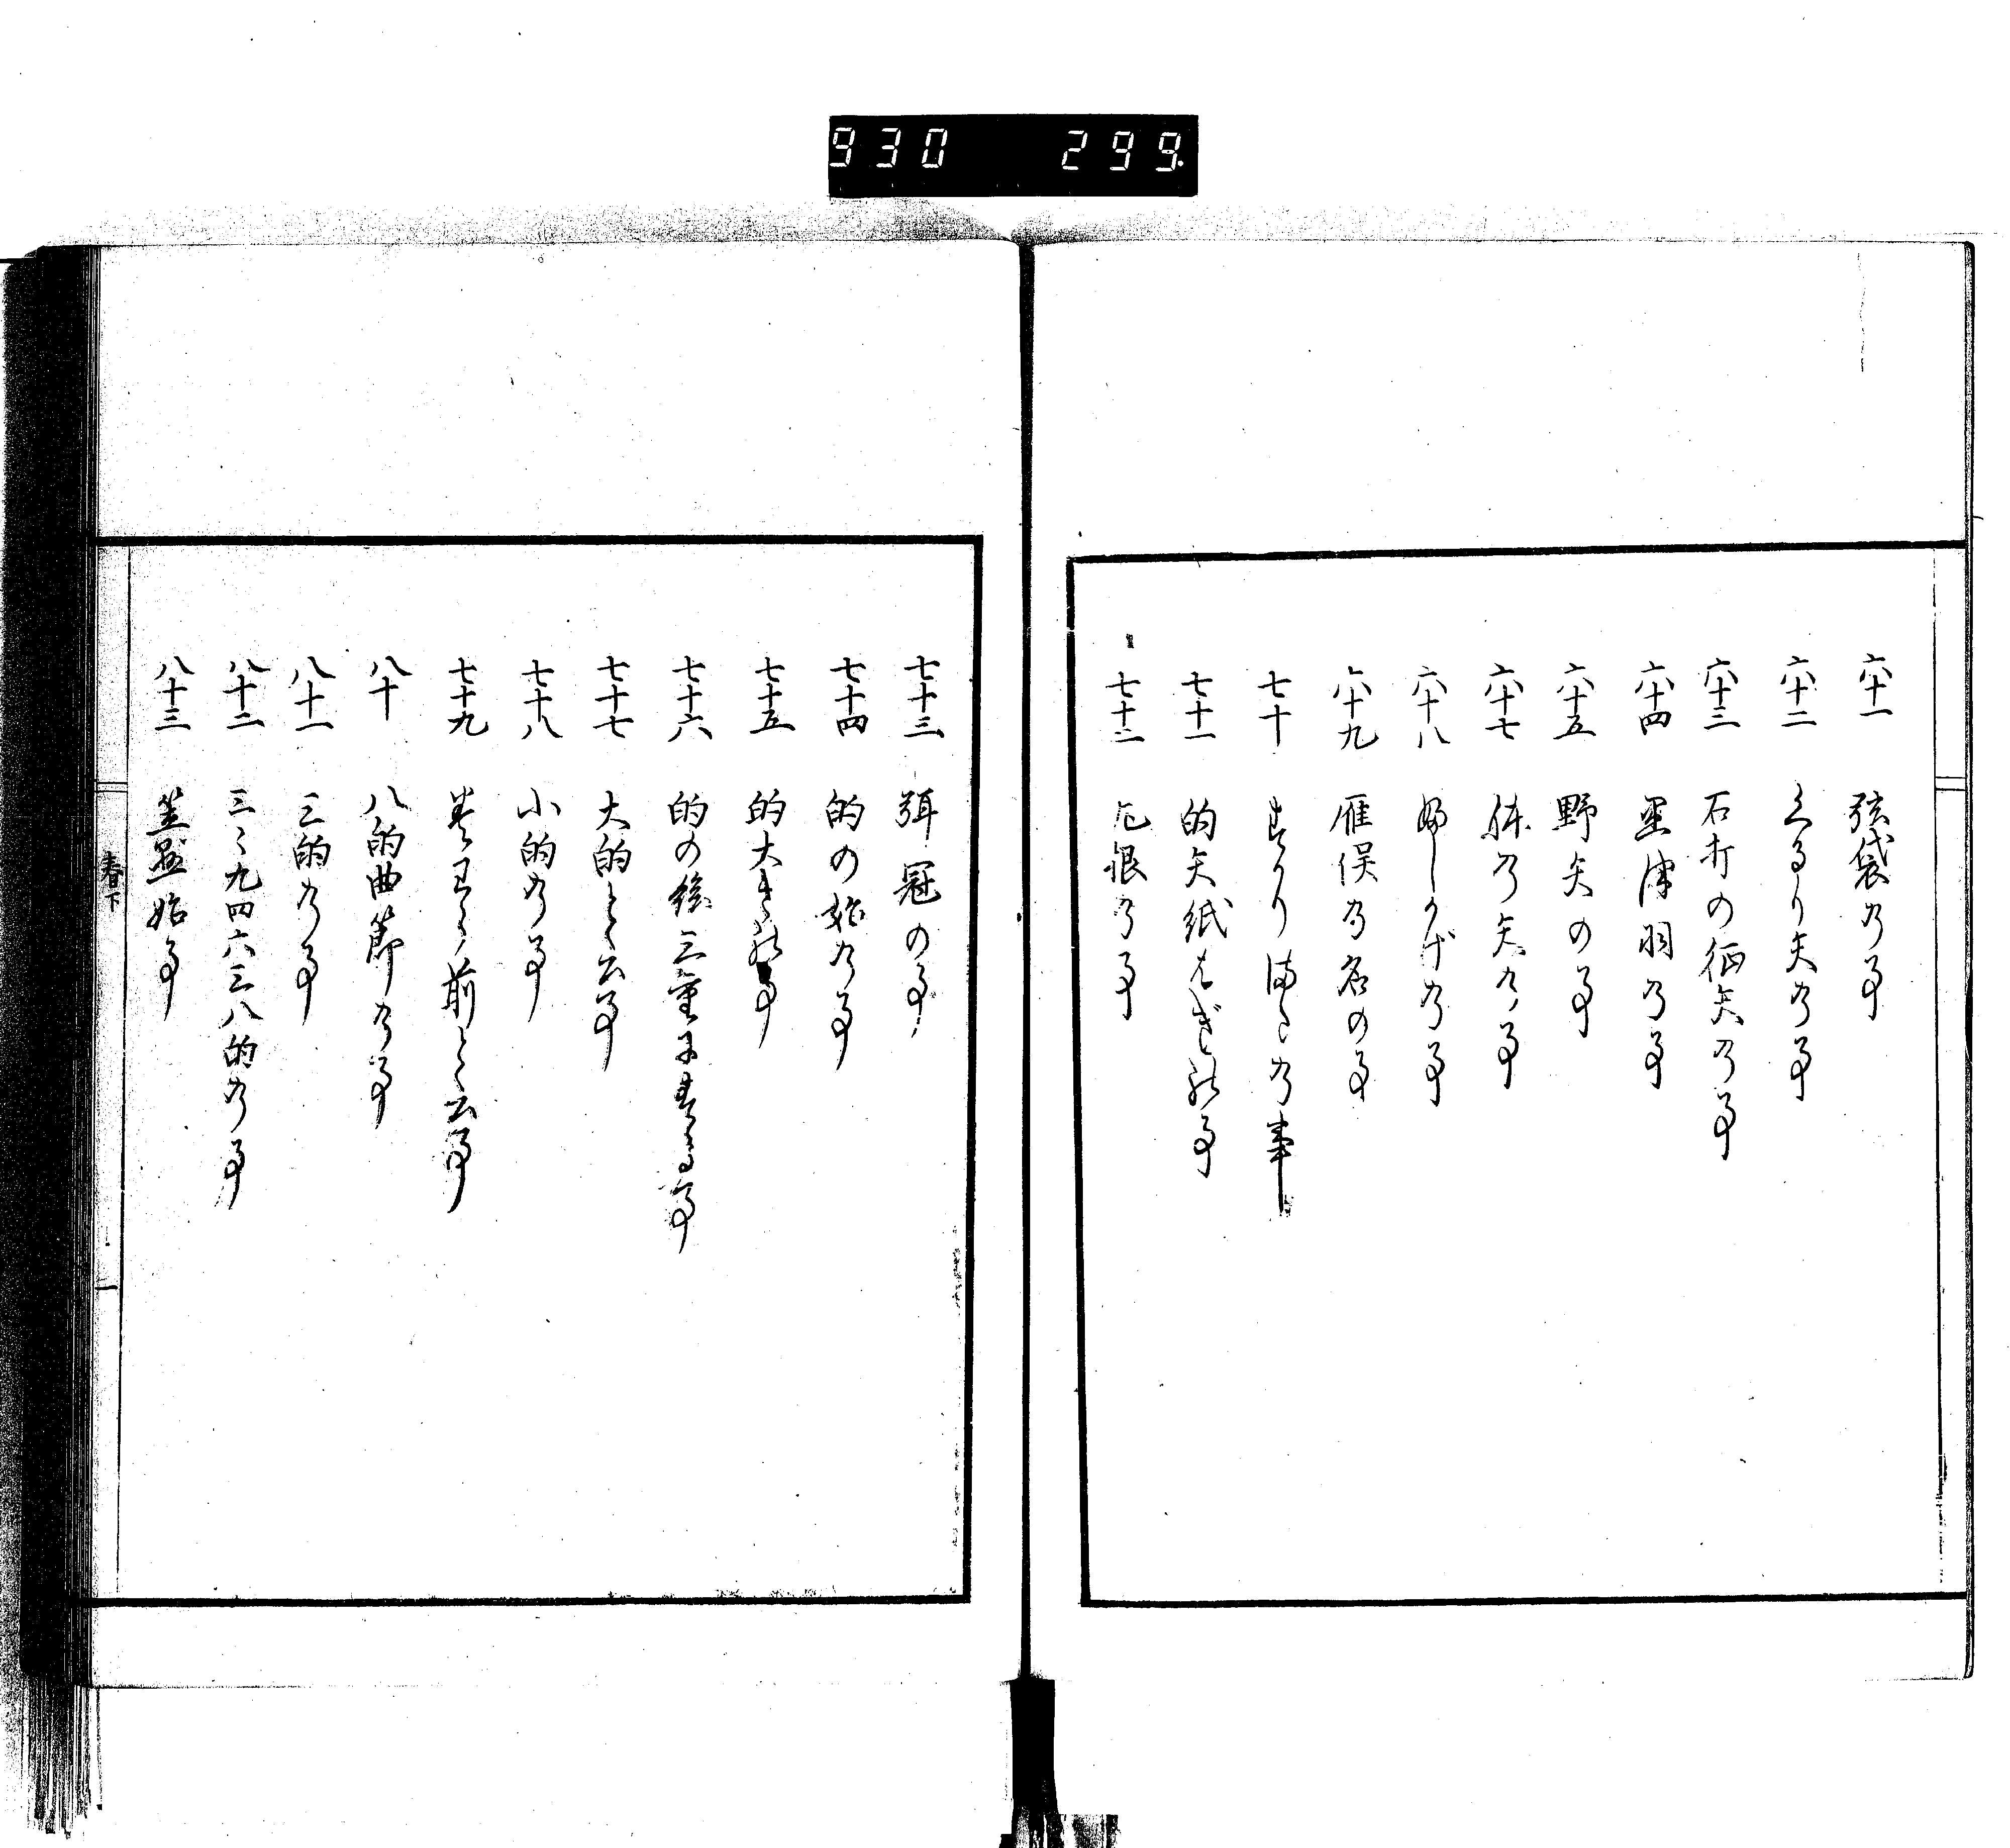 930 299.
六十一 弦袋の事
六十二 くるり矢の事
六十三 石打の征矢の事
六十四 星津羽の事
六十五 野矢の事
六十七 の矢の事
六十八 の事
六十九 雁俣の名の事
七十 の事
七十一 的矢紙はぎ 事
七十二 の事
七十三 弭冠の事
七十四 的の始の事
七十五 的大 事
七十六 的の絵三重に 事
七十七 大的と云事
七十八 小的の事
七十九 前と云事
八十 八的曲節の事
八十一 三的の事
八十二 三々九四六三八的の事
八十三 笠懸始事
春下
一